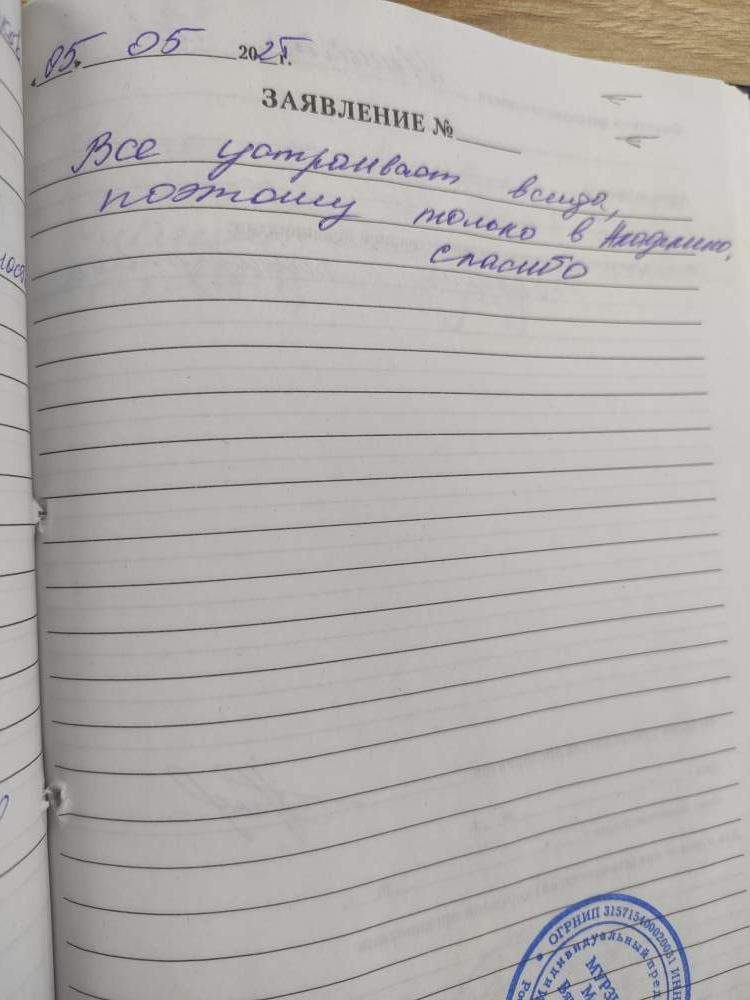 «05» 05 2025 г.
ЗАЯВЛЕНИЕ №
Все устраивает всегда,
поэтому только в Академию,
спасибо
ОГРНИП 315715400020051 ИНН
Индивидуальный пред
МУРЗ